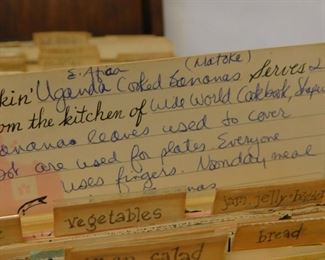 E. Africa (Matoke)
kin' Uganda Cooked bananas Serves 2
om the kitchen of Wide World Cookbook,
bananas leaves used to cover
pot are used for plates. Everyone
uses fingers. Noonday meal
vegetables
jam. jelly.
bread
salad